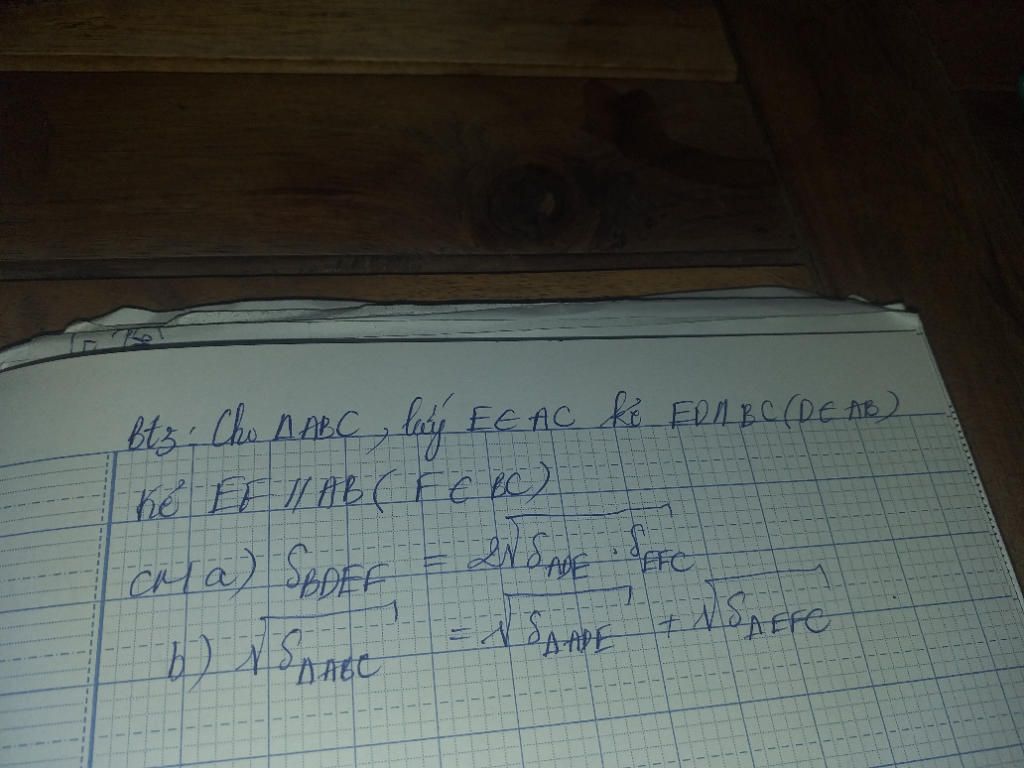 Bt3: Cho ΔABC, lấy E∈AC kẻ ED//BC(D∈AB)
Kẻ EF//AB(F∈BC)
CM a) S_BDEF = 2√S_ADE . S_EFC
b) √S_ΔABC = √S_ΔADE + √S_ΔEFC